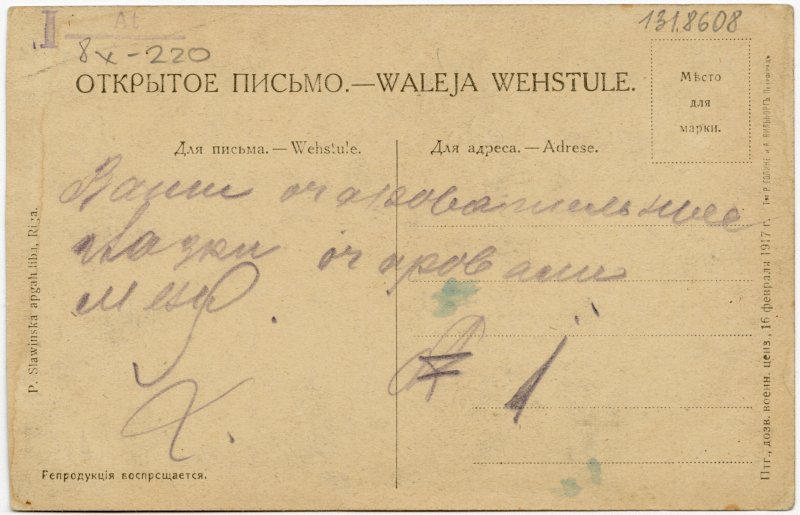 1318608
8x-220
ОТКРЫТОЕ ПИСЬМО.—WALEJA WEHSTULE.
Мѣсто
для
марки.
Для письма.—Wehstule.
Для адреса.—Adrese.
Ваши очаровательные
глазки очаровали
меня.
Х.
P. Slawinska apgahdiba, Riga.
Репродукція воспрещается.
Птг., дозв. военн. ценз., 16 февраля 1917 г. Тип Р. ГОЛИКЕ и А. ВИЛЬБОРГЪ